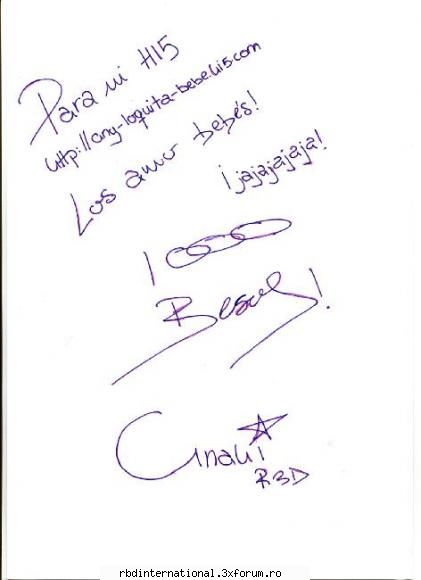 Para mi HI5
http://any-loquita-bebe.hi5.com
Los amo bebés!
¡jajajajaja!
1000
Besos!
Anahi
RBD
rbdinternational.3xforum.ro